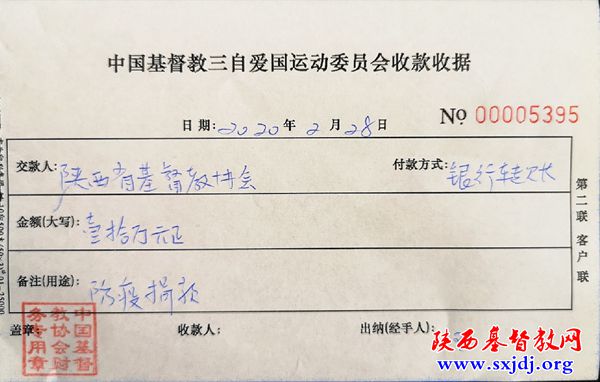 中国基督教三自爱国运动委员会收款收据
No 00005395
日期:2020年2月28日
交款人:陕西省基督教协会 付款方式:银行转账
金额(大写):壹拾万元正
备注(用途):防疫捐款
盖章: 收款人: 出纳(经手人):
第二联 客户联
中国基督教协会财务专用章
陕西基督教网
www.sxjdj.org